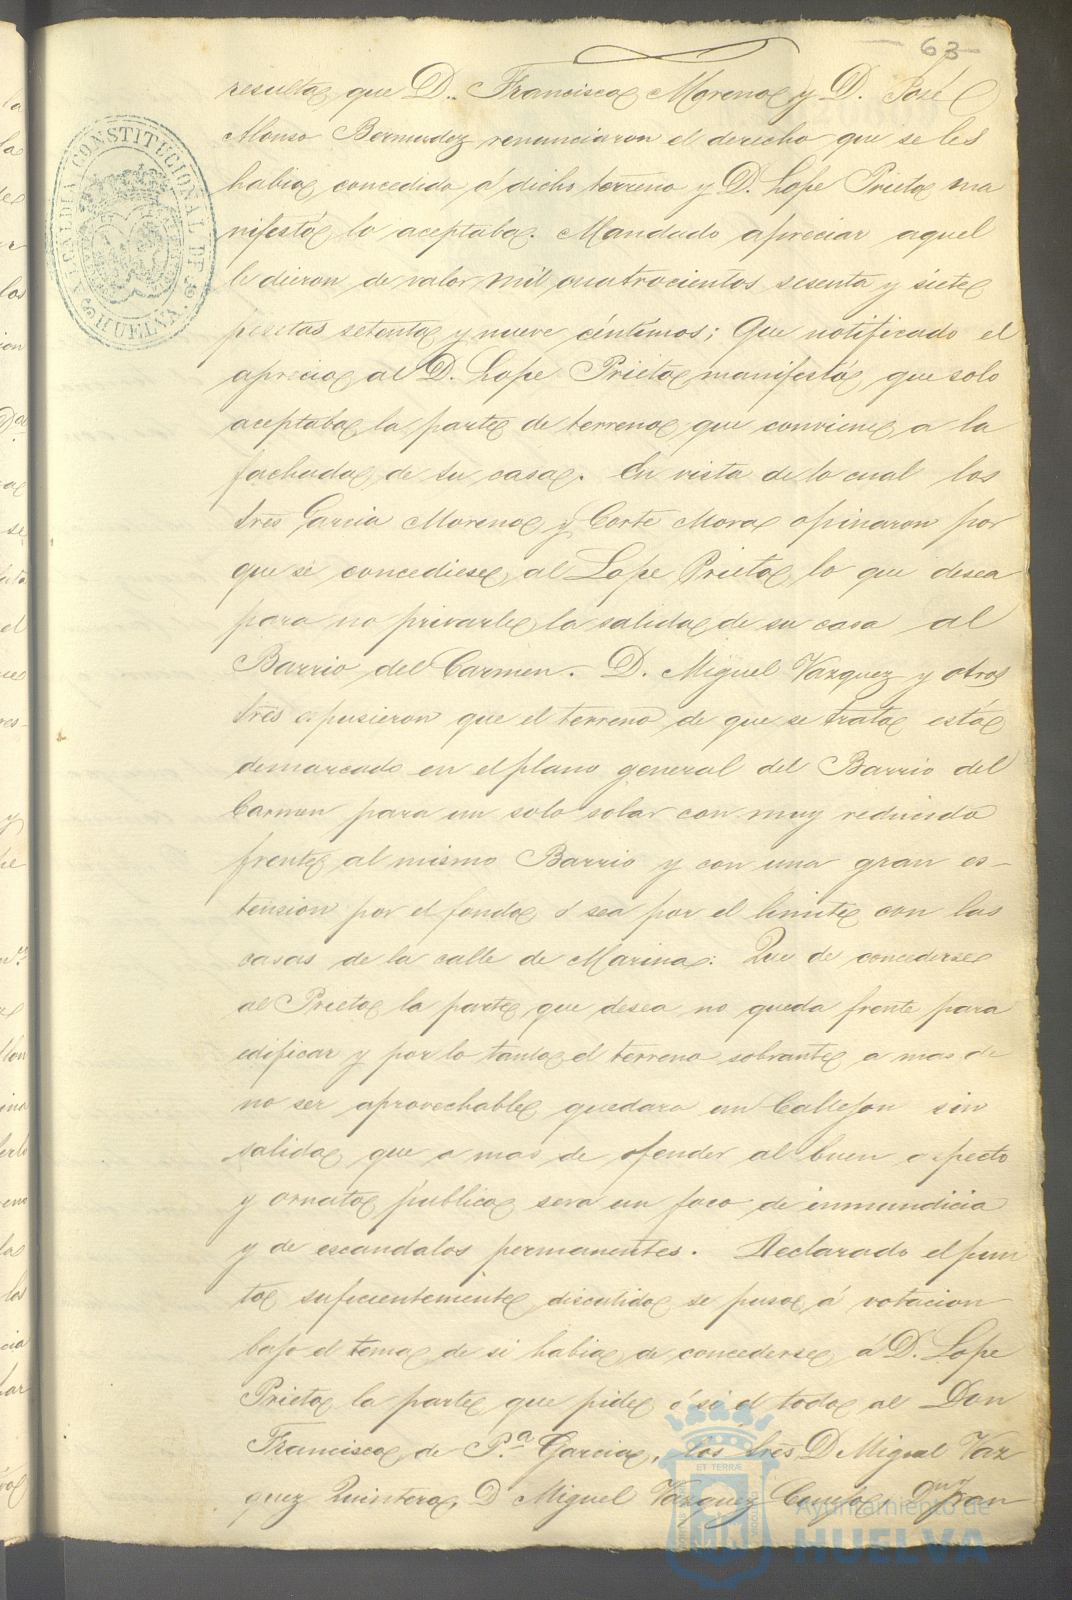 63
resulta que D. Francisco Moreno y D. José
Alonso Bermudez renunciaron el derecho que se les
habia concedido á dicho terreno y D. Lope Prieto ma
nifestó lo aceptaba. Mandado apreciar aquel
le dieron de valor mil cuatrocientos sesenta y siete
pesetas setenta y nueve céntimos; Que notificado el
aprecio al D. Lope Prieto manifestó que solo
aceptaba la parte de terreno que conviene a la
fachada de su casa. En vista de lo cual los
Sres Garcia Moreno y Corte Mora opinaron por
que se concediese al Lope Prieto lo que desea
para no privarle la salida de su casa al
Barrio del Carmen. D. Miguel Vazquez y otros
Sres espusieron que el terreno de que se trata está
demarcado en el plano general del Barrio del
Carmen para un solo solar con muy reducido
frente al mismo Barrio y con una gran es-
tension por el fondo ó sea por el limite con las
casas de la calle de Marina: Que de concederse
al Prieto la parte que desea no queda frente para
edificar y por lo tanto el terreno sobrante a mas de
no ser aprovechable quedara un Callejon sin
salida que a mas de ofender al buen aspecto
y ornato publico sera un foco de inmundicia
y de escandalos permanentes. Declarado el pun
to suficientemente discutido se puso á votacion
bajo el tema de si habia de concederse á D. Lope
Prieto la parte que pide ó si el todo al Don
Francisco de P.ª Garcia, los Sres D Miguel Vaz
quez Quintero, D Miguel Vazquez D.n Juan
ALCALDIA CONSTITUCIONAL DE HUELVA
ET TERRÆ
Ayuntamiento de
HUELVA